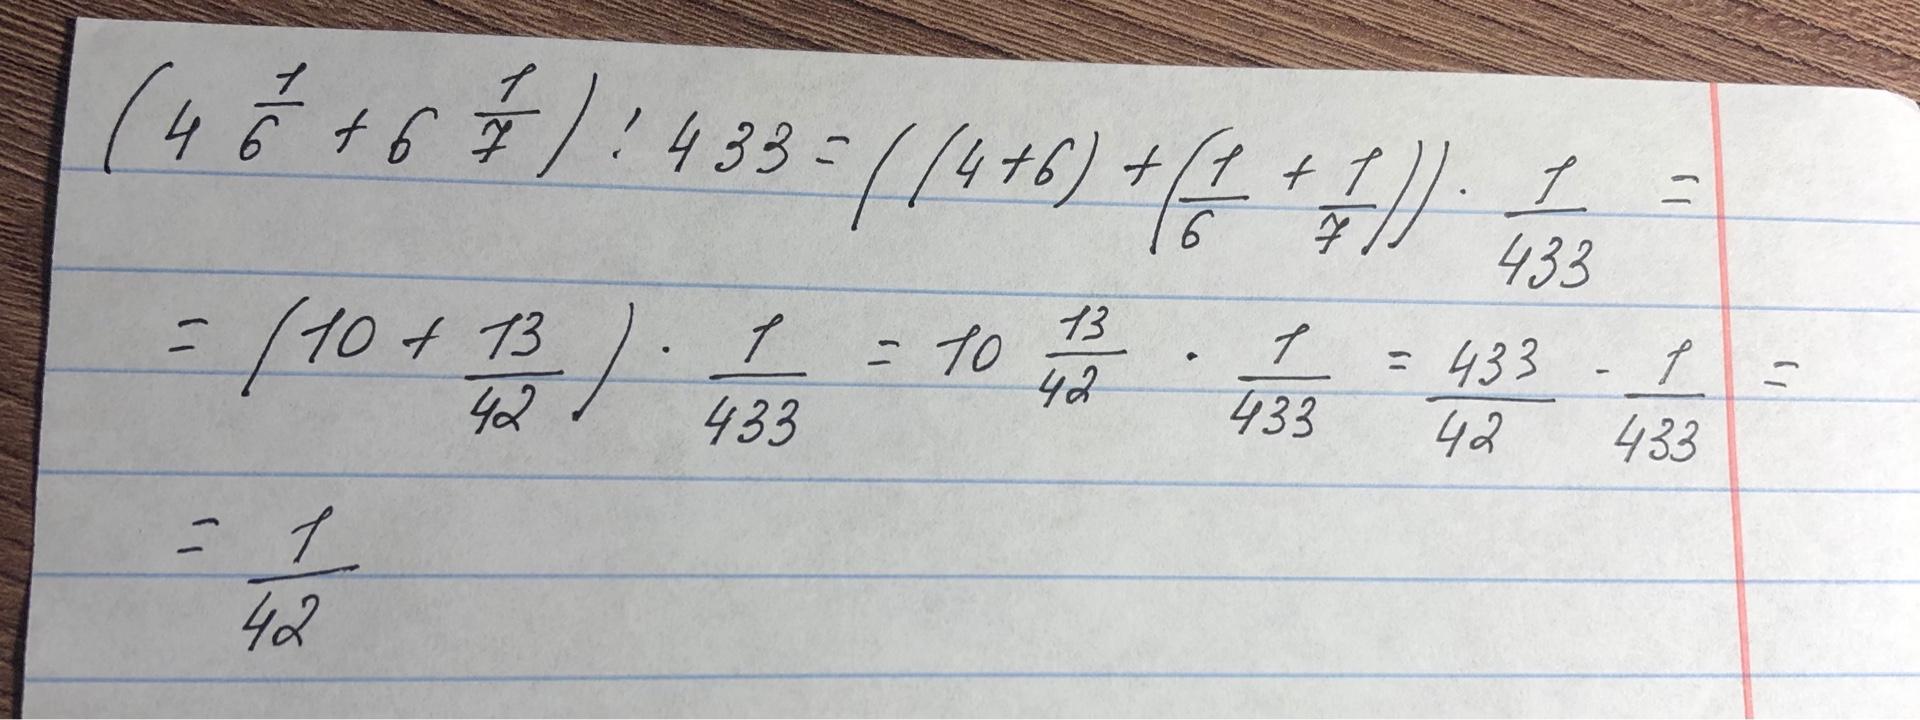 (4 1/6 + 6 1/7) : 433 = ((4+6) + (1/6 + 1/7)) · 1/433 =
= (10 + 13/42) · 1/433 = 10 13/42 · 1/433 = 433/42 · 1/433 =
= 1/42